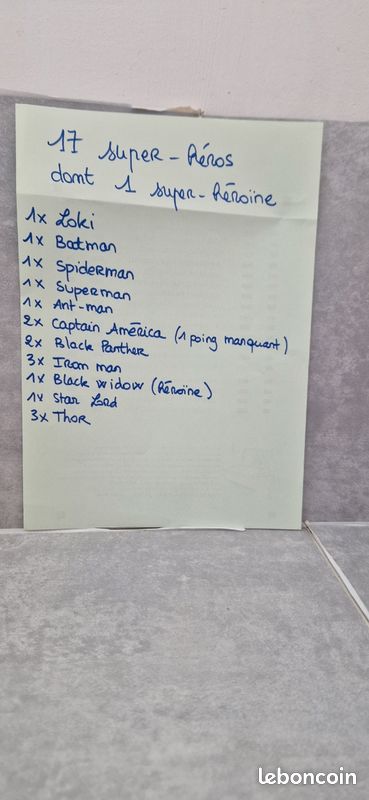 17 super-héros
dont 1 super-héroïne
1x Loki
1x Batman
1x Spiderman
1x Superman
1x Ant-man
2x Captain América (1 poing manquant)
2x Black Panther
3x Iron man
1x Black widow (héroïne)
1x Star Lord
3x Thor
leboncoin